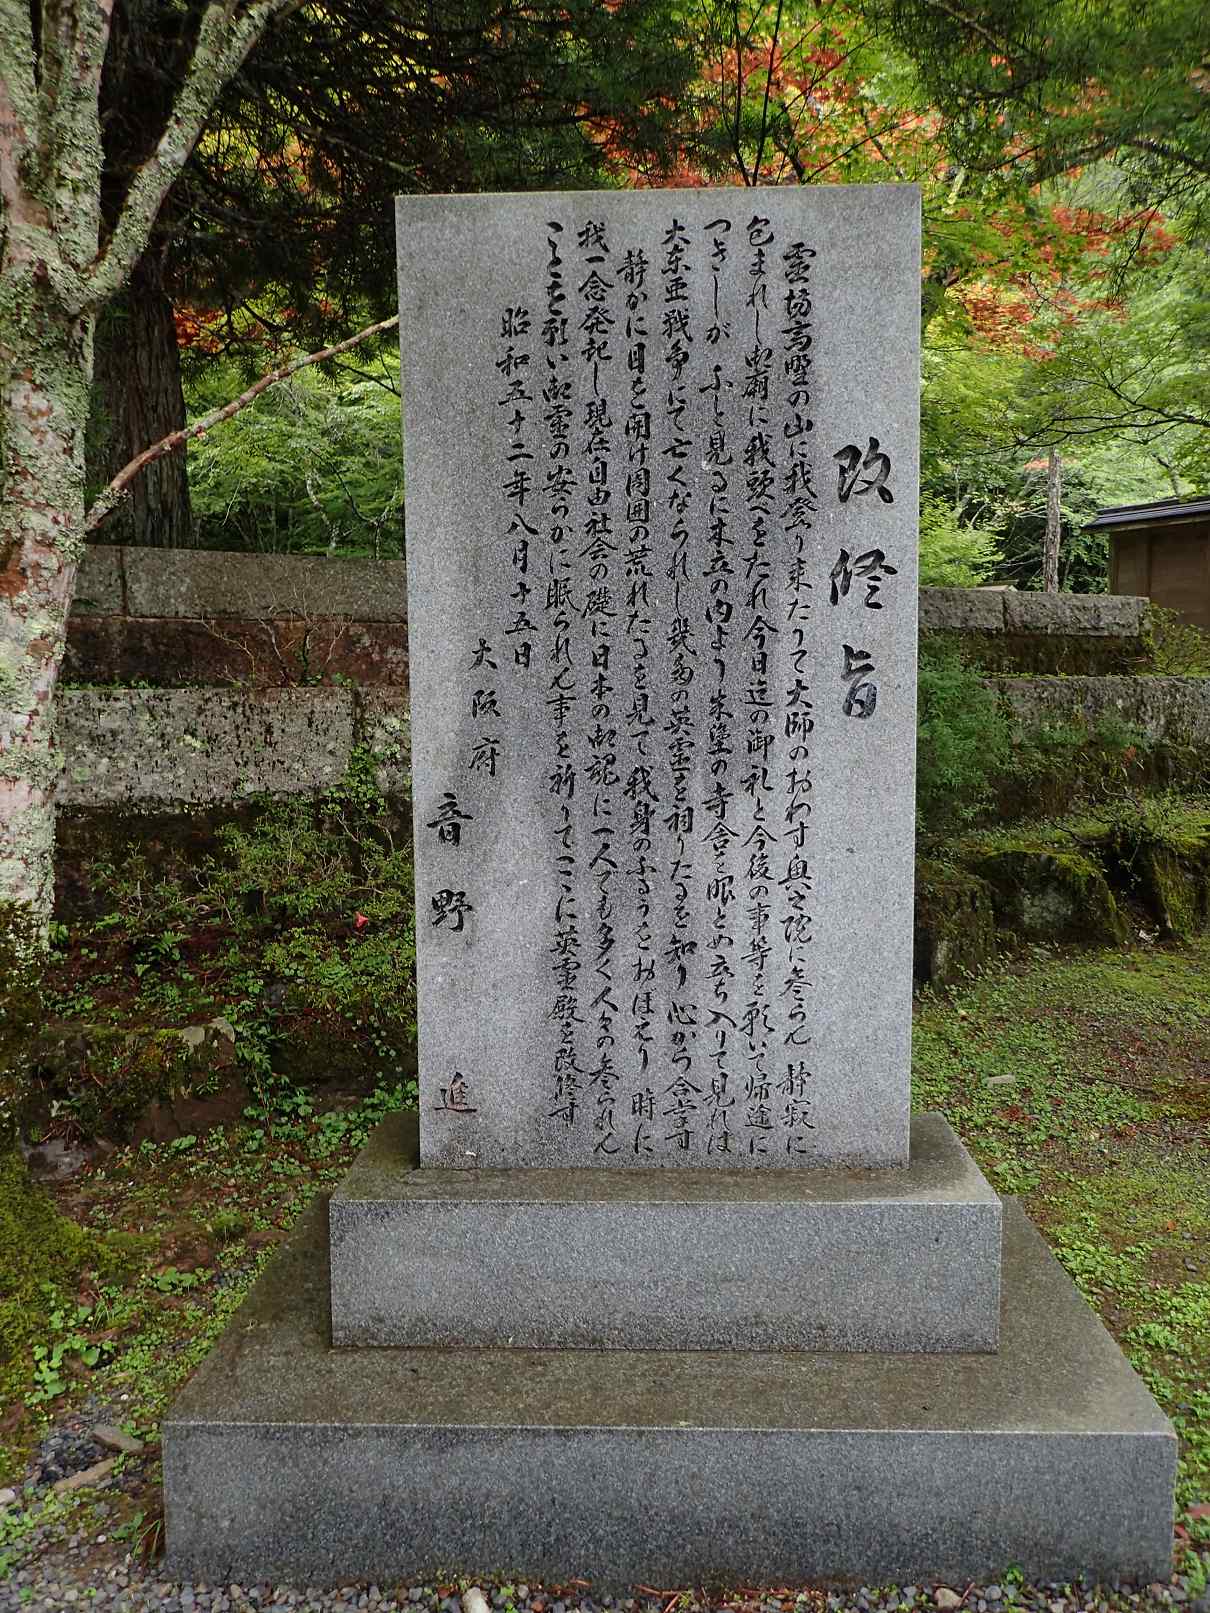 改修旨
霊場高野の山に我登り来たりて大師のおわす奥之院に参らん 静寂に
包まれし御廟に我頭べをたれ今日迄の御礼と今後の事等を願いて帰途に
つきしが ふと見るに木立の内より朱塗の寺舎を眼とめ立ち入りて見れば
大東亜戦争にて亡くなられし幾多の英霊を祠りたるを知り 心から合掌す
静かに目を開け周囲の荒れたるを見て我身のふるうをおぼえり 時に
我一念発起し現在自由社会の礎に日本の御魂に一人でも多く人々の参られん
ことを願い御霊の安らかに眠られん事を祈りてここに英霊殿を改修す
昭和五十二年八月十五日
大阪府
音野 進